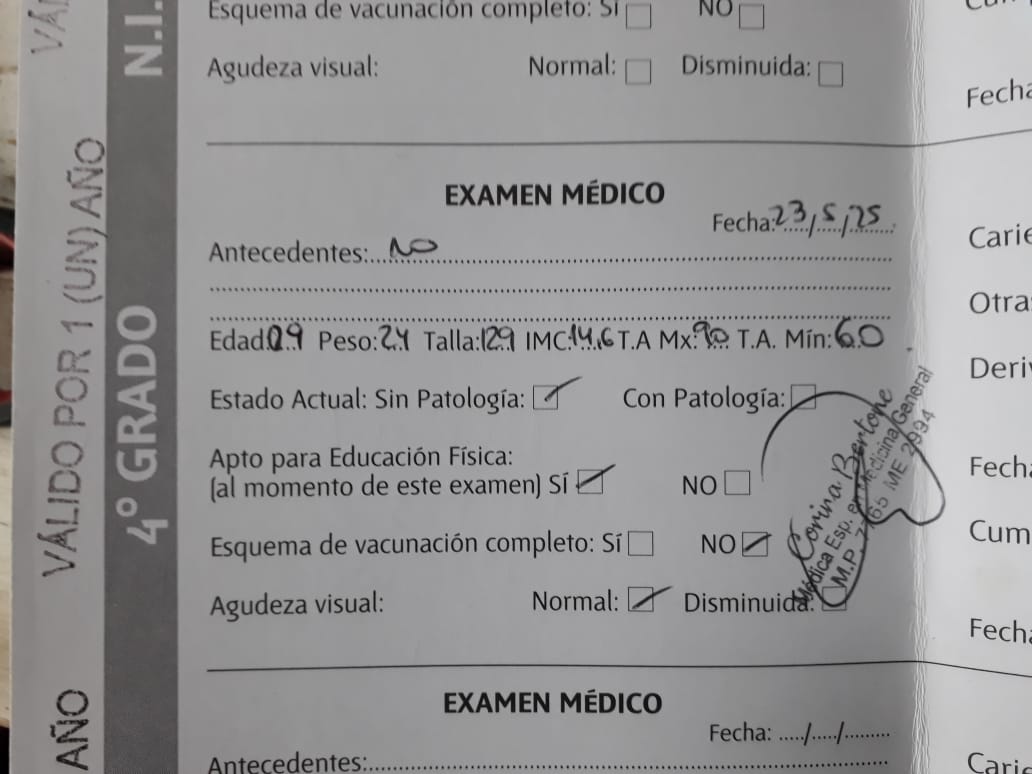 Esquema de vacunación completo: Sí NO
Agudeza visual: Normal: Disminuida:
EXAMEN MÉDICO
Fecha: 23/5/25
Antecedentes: NO
Edad: 09 Peso: 24 Talla: 129 IMC: 14.6 T.A Mx: 90 T.A. Mín: 60
Estado Actual: Sin Patología: Con Patología:
Apto para Educación Física:
(al momento de este examen) Sí NO
Esquema de vacunación completo: Sí NO
Agudeza visual: Normal: Disminuida:
Corina Bertone
Médica Esp. en Medicina General
M.P. 7765 ME 2994
EXAMEN MÉDICO
Fecha: ..../..../.........
Antecedentes:
VÁLIDO POR 1 (UN) AÑO
4º GRADO
N.I.
VÁ
AÑO
Fecha
Carie
Otra
Deriv
Fecha
Cum
Fecha
Carie